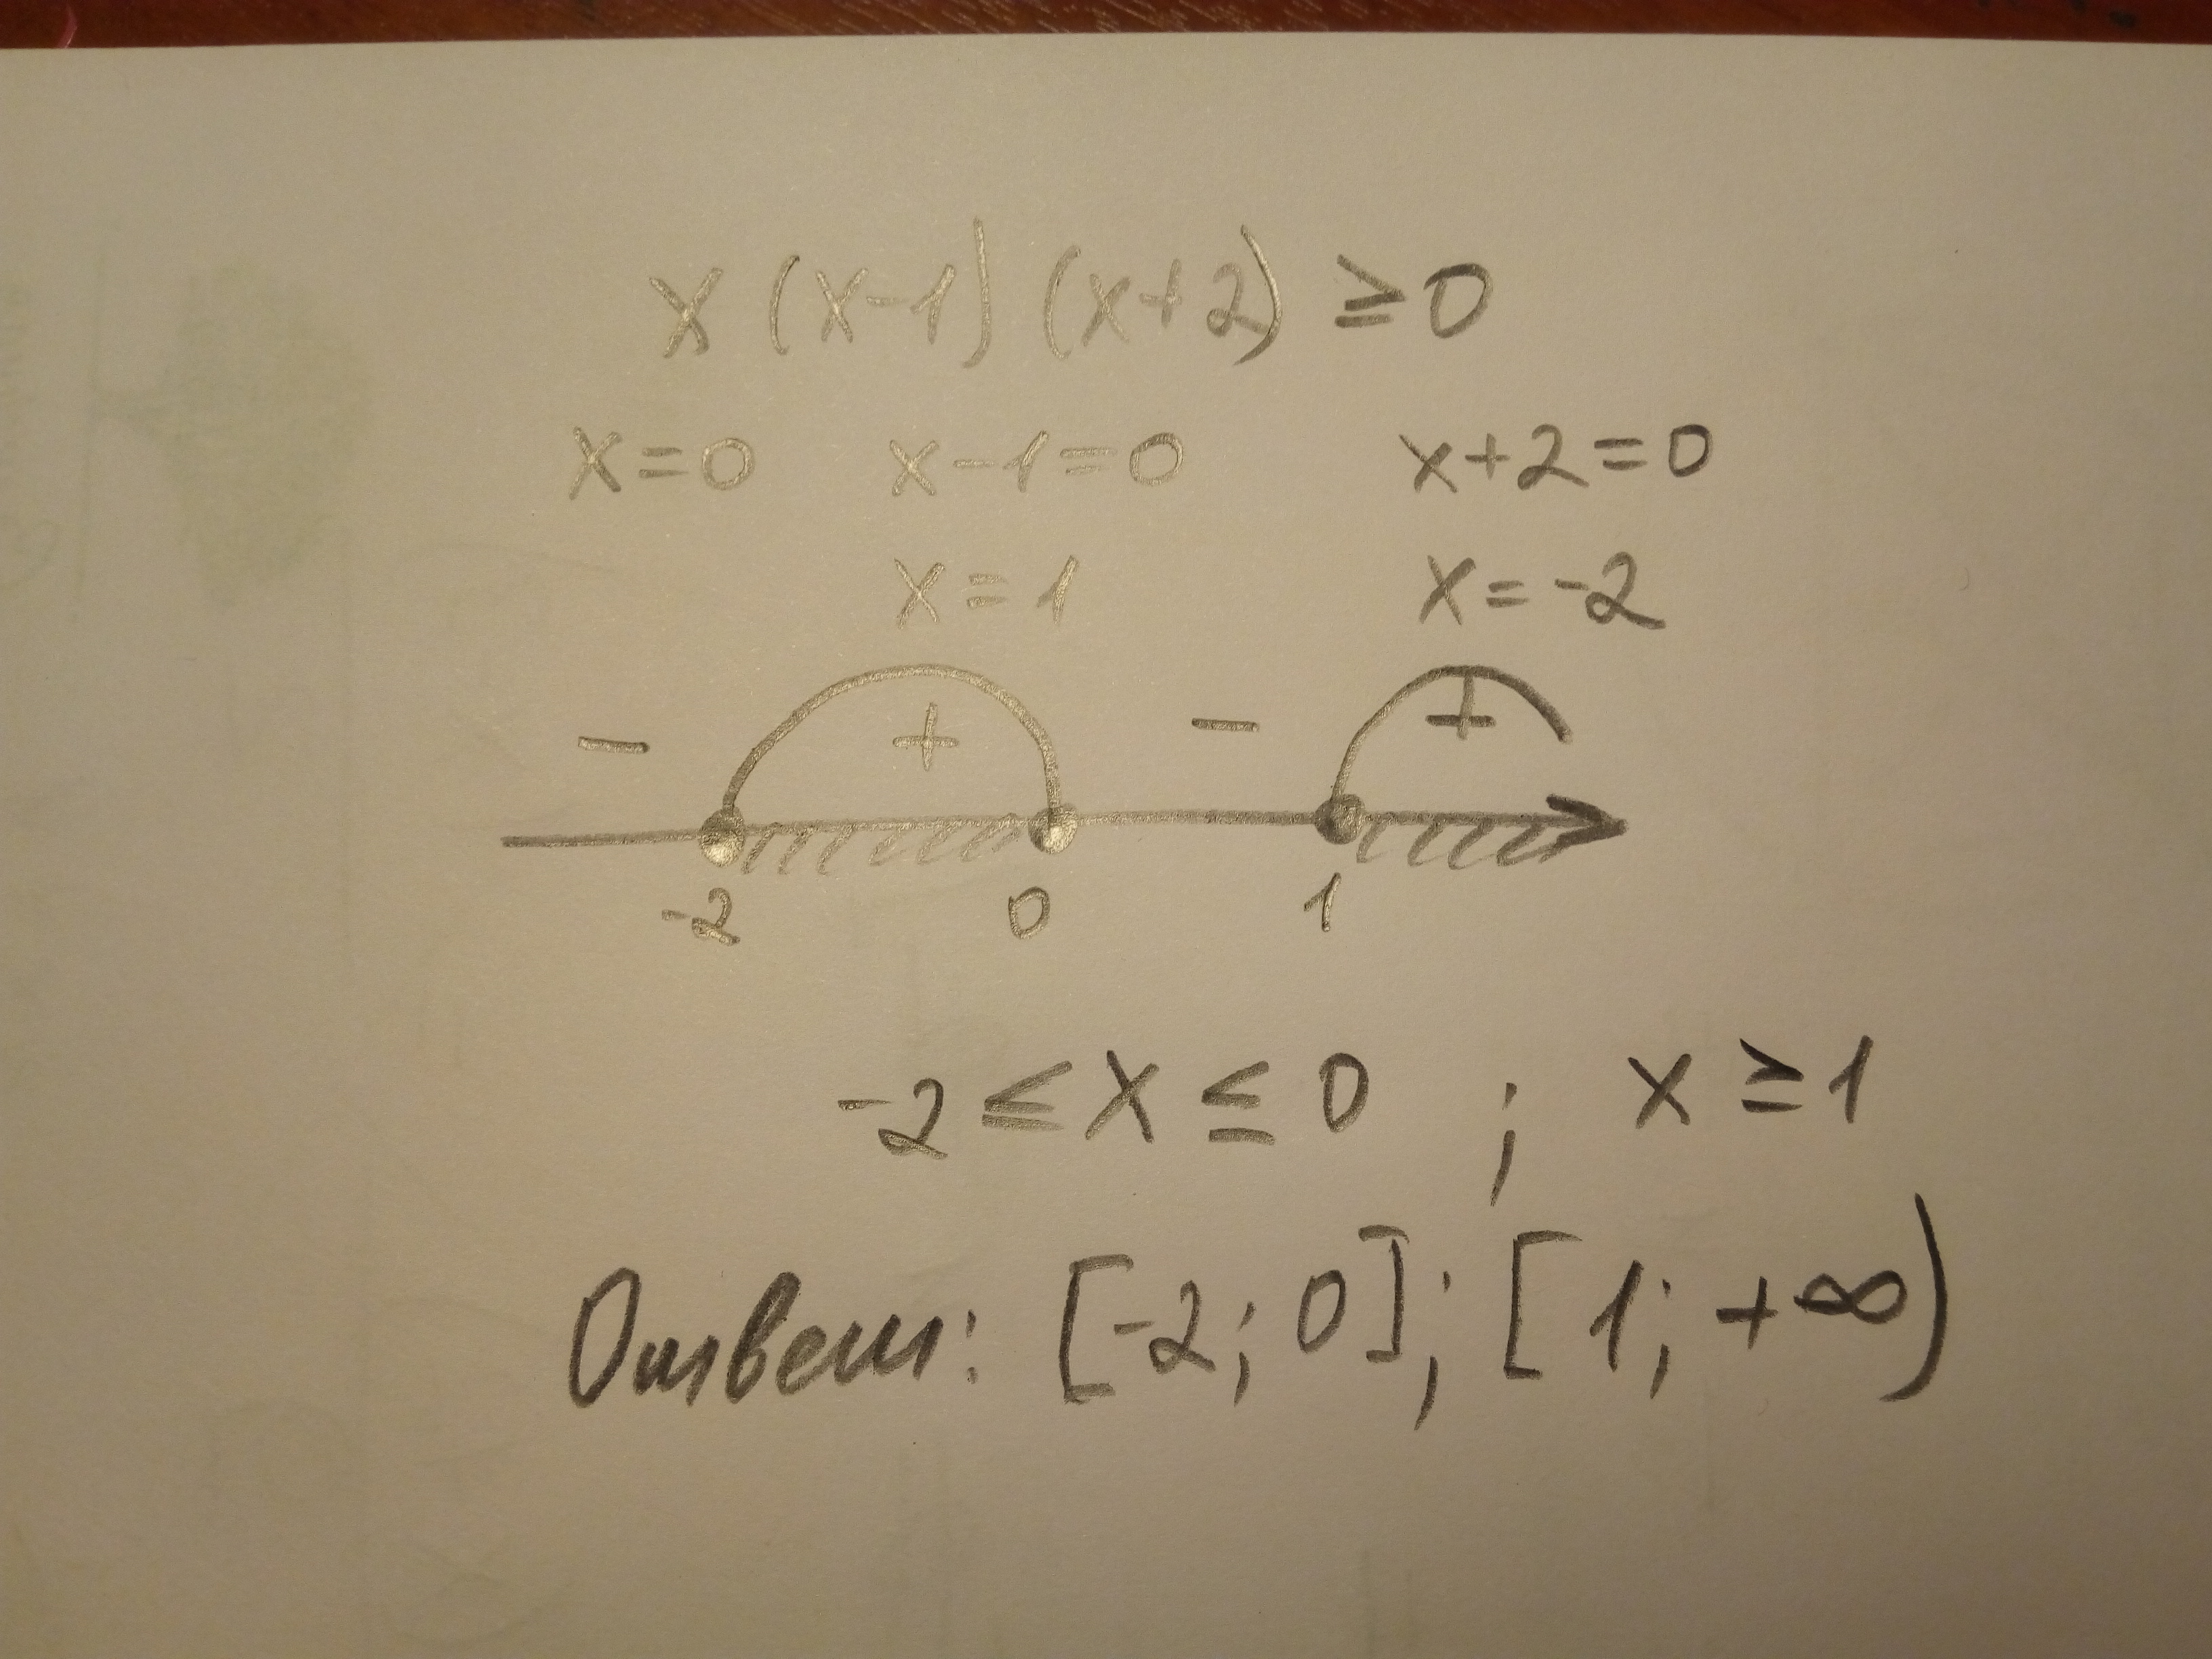 x (x-1) (x+2) ≥ 0
x=0 x-1=0 x+2=0
x=1 x=-2
- + - +
-2 0 1
-2 ≤ x ≤ 0 ; x ≥ 1
Ответ: [-2; 0]; [1; +∞)